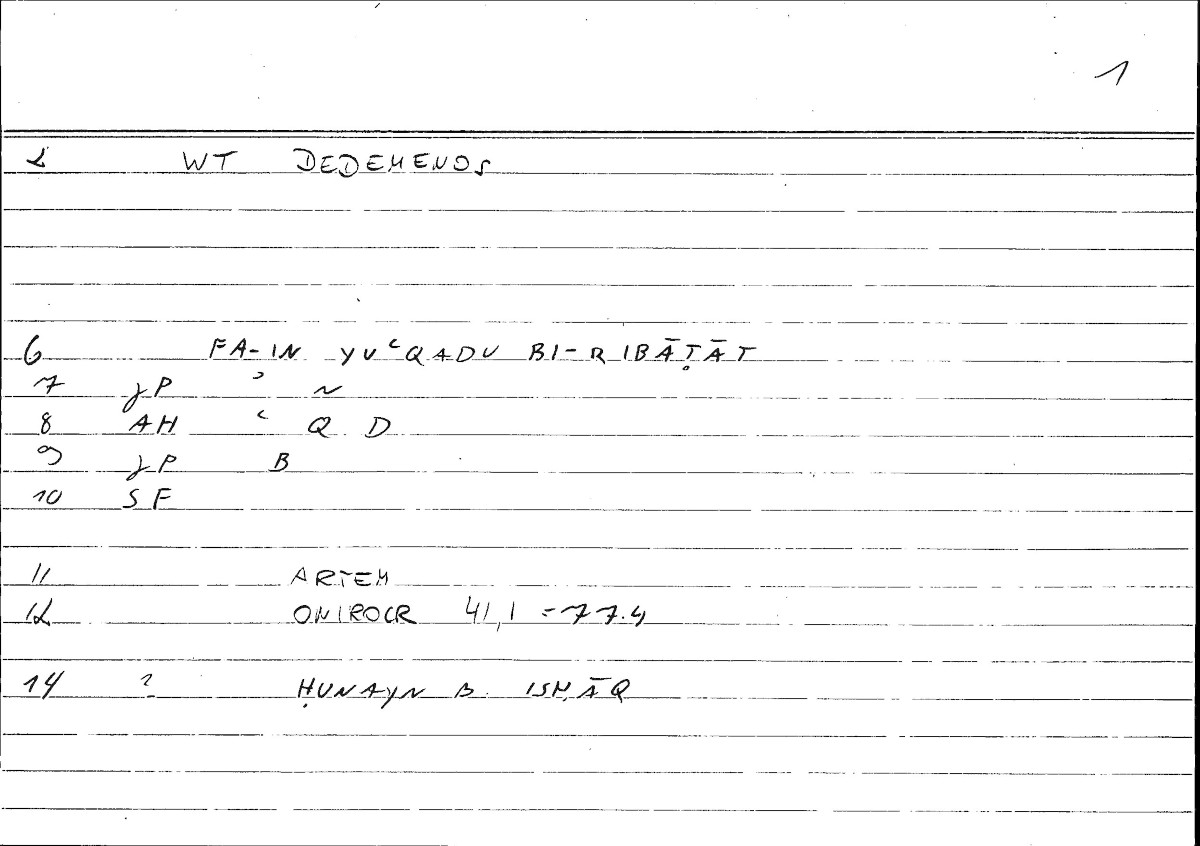 1
2 WT DEDEMENOS
6 FA-IN YUʿQADU BI-RIBĀṬĀT
7 JP ʾ N
8 AH ʿ Q D
9 JP B
10 SF
11 ARTEM
12 ONIROCR 41,1 = 77.4
14 ? ḤUNAYN B. ISḤĀQ